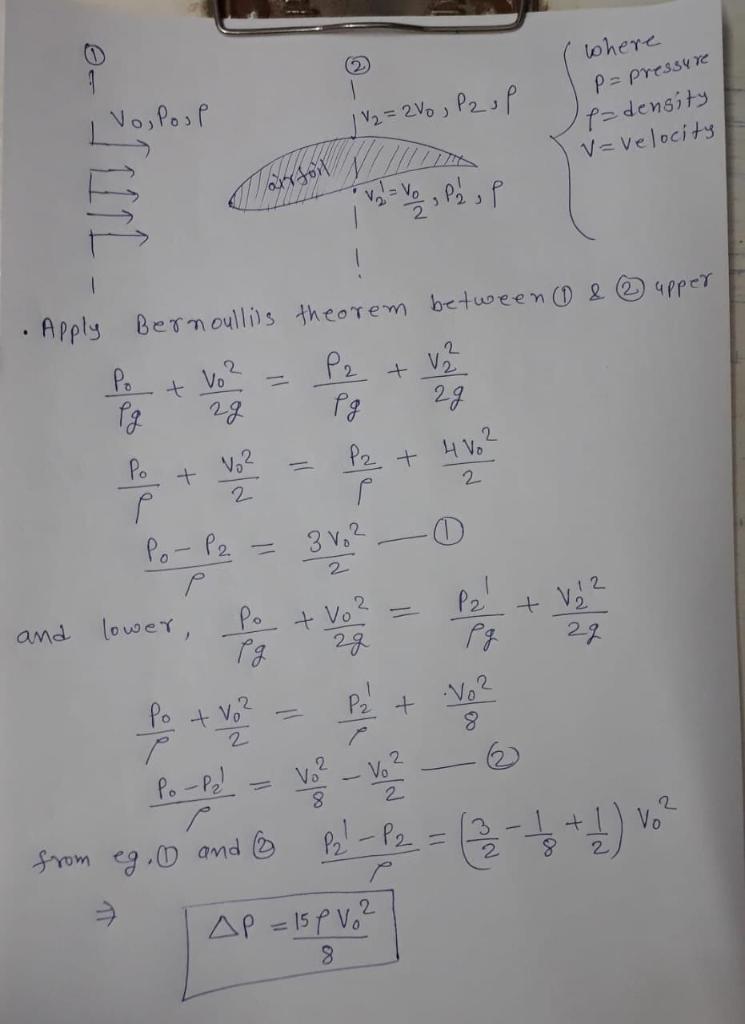 ①
②
where
V₀, P₀, ρ
V₂ = 2V₀, P₂, ρ
P = pressure
ρ = density
V = velocity
airfoil
V₂' = V₀/2, P₂', ρ
• Apply Bernoullis theorem between ① & ② upper
P₀/ρg + V₀²/2g = P₂/ρg + V₂²/2g
P₀/ρ + V₀²/2 = P₂/ρ + 4V₀²/2
(P₀ - P₂)/ρ = 3V₀²/2 — ①
and lower, P₀/ρg + V₀²/2g = P₂'/ρg + V₂'²/2g
P₀/ρ + V₀²/2 = P₂'/ρ + V₀²/8
(P₀ - P₂')/ρ = V₀²/8 - V₀²/2 — ②
from eg. ① and ② (P₂' - P₂)/ρ = (3/2 - 1/8 + 1/2) V₀²
⇒ ΔP = 15ρV₀²/8